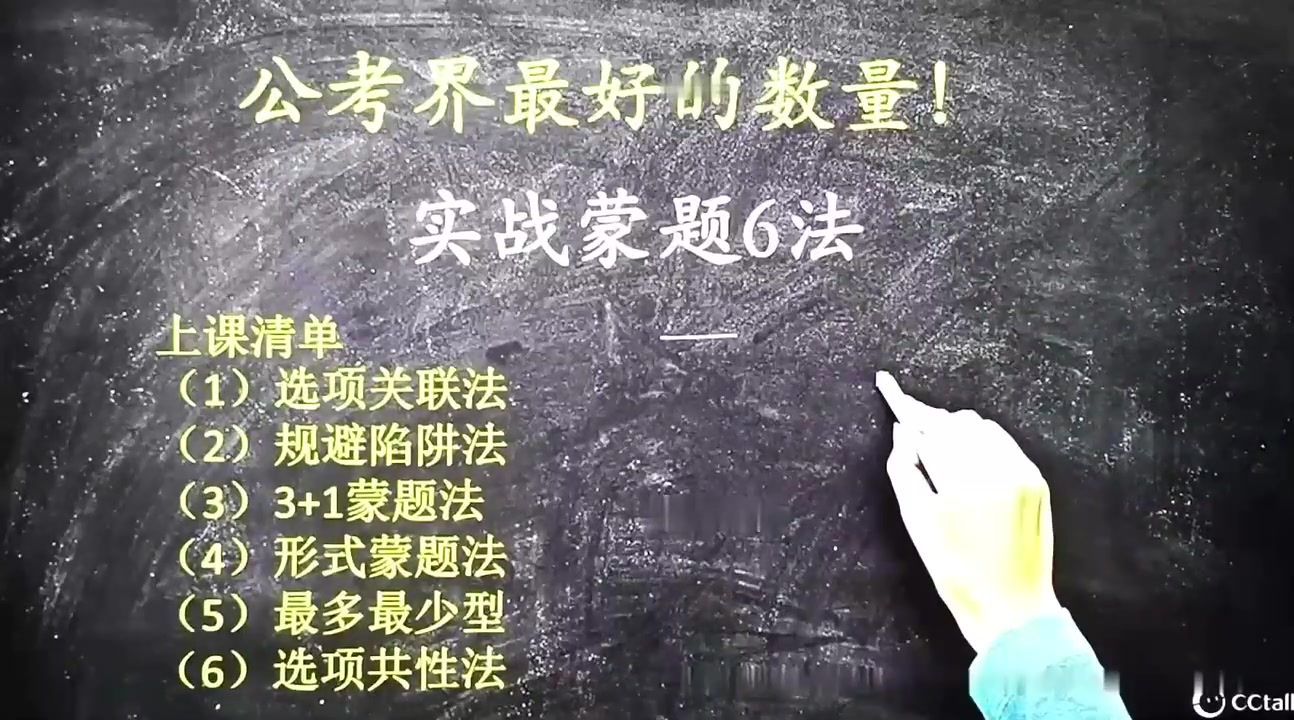 公考界最好的数量！
实战蒙题6法
上课清单
（1）选项关联法
（2）规避陷阱法
（3）3+1蒙题法
（4）形式蒙题法
（5）最多最少型
（6）选项共性法
CCtalk